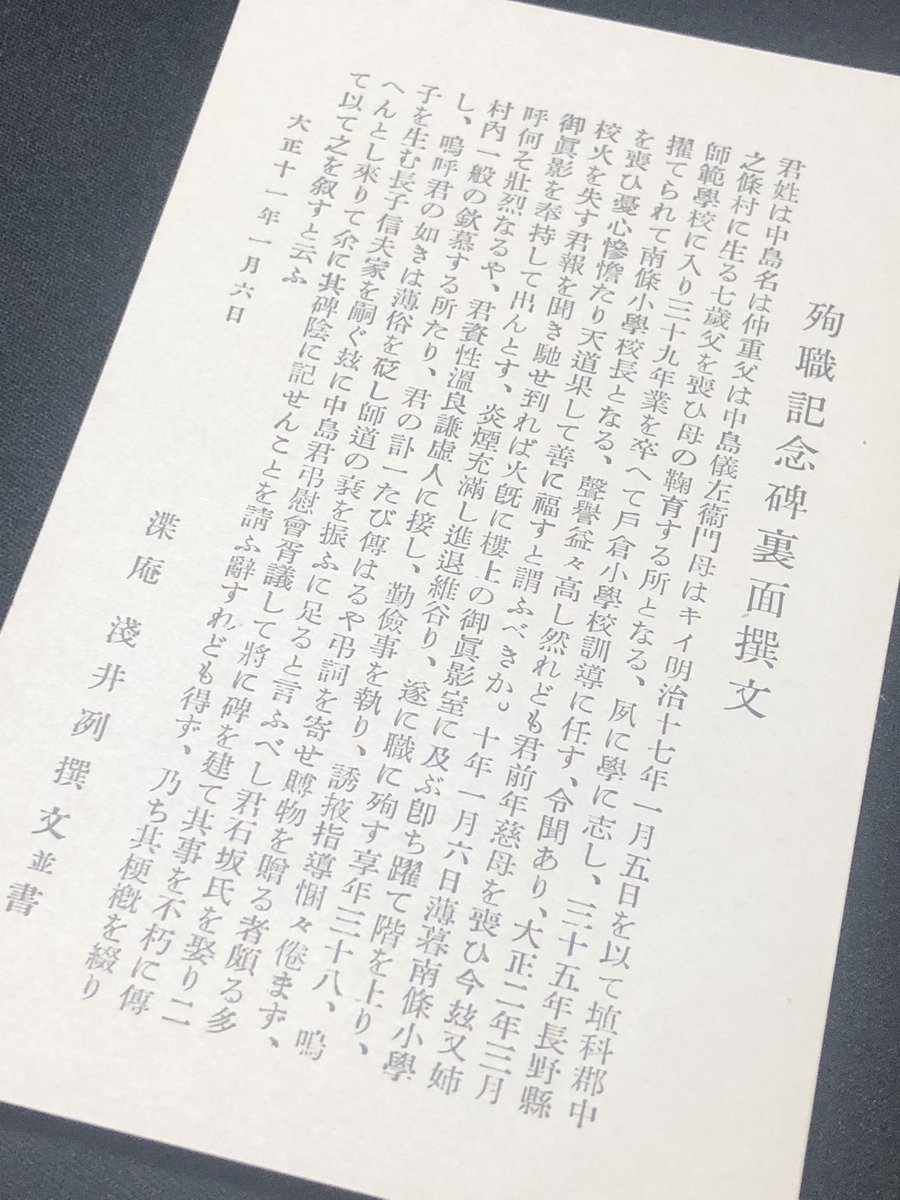 殉職記念碑裏面撰文
君姓は中島名は仲重父は中島儀左衞門母はキイ明治十七年一月五日を以て埴科郡中
之條村に生る七歲父を喪ひ母の鞠育する所となる、夙に學に志し、三十五年長野縣
師範學校に入り三十九年業を卒へて戸倉小學校訓導に任す、令聞あり、大正二年三月
擢てられて南條小學校長となる、聲譽益々高し然れども君前年慈母を喪ひ今玆又姉
を喪ひ憂心慘憺たり天道果して善に福すと謂ふべきか。十年一月六日薄暮南條小學
校火を失す君報を聞き馳せ到れば火旣に樓上の御眞影室に及ぶ卽ち躍て階を上り、
御眞影を奉持して出んとす、炎煙充滿し進退維谷り、遂に職に殉す享年三十八、嗚
呼何そ壯烈なるや、君資性溫良謙虛人に接し、勤儉事を執り、誘掖指導悃々倦まず、
村內一般の欽慕する所たり、君の訃一たび傳はるや弔詞を寄せ賻物を贈る者頗る多
し、嗚呼君の如きは薄俗を砭し師道の衰を振ふに足ると言ふべし君石坂氏を娶り二
子を生む長子信夫家を嗣ぐ玆に中島君弔慰會胥議して將に碑を建て其事を不朽に傳
へんとし來りて余に其碑陰に記せんことを請ふ辭すれども得ず、乃ち其梗槪を綴り
て以て之を叙すと云ふ
大正十一年一月六日
渫庵 淺井洌撰文並書